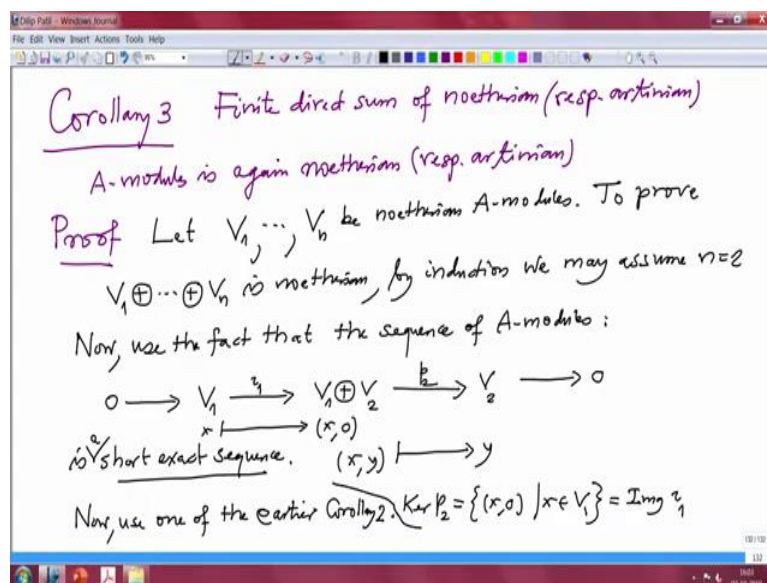 Dilip Patil - Windows Journal
File Edit View Insert Actions Tools Help
Corollary 3 Finite direct sum of noetherian (resp. artinian)
A-modules is again noetherian (resp. artinian)
Proof Let V₁, ..., Vₙ be noetherian A-modules. To prove
V₁ ⊕ ... ⊕ Vₙ is noetherian, by induction we may assume n=2
Now, use the fact that the sequence of A-modules:
0 → V₁ —ι₁→ V₁ ⊕ V₂ —p₂→ V₂ → 0
x ↦ (x,0)
is a short exact sequence. (x,y) ↦ y
Now, use one of the earlier Corollary 2. Ker p₂ = {(x,0) | x ∈ V₁} = Img ι₁
132/132
132